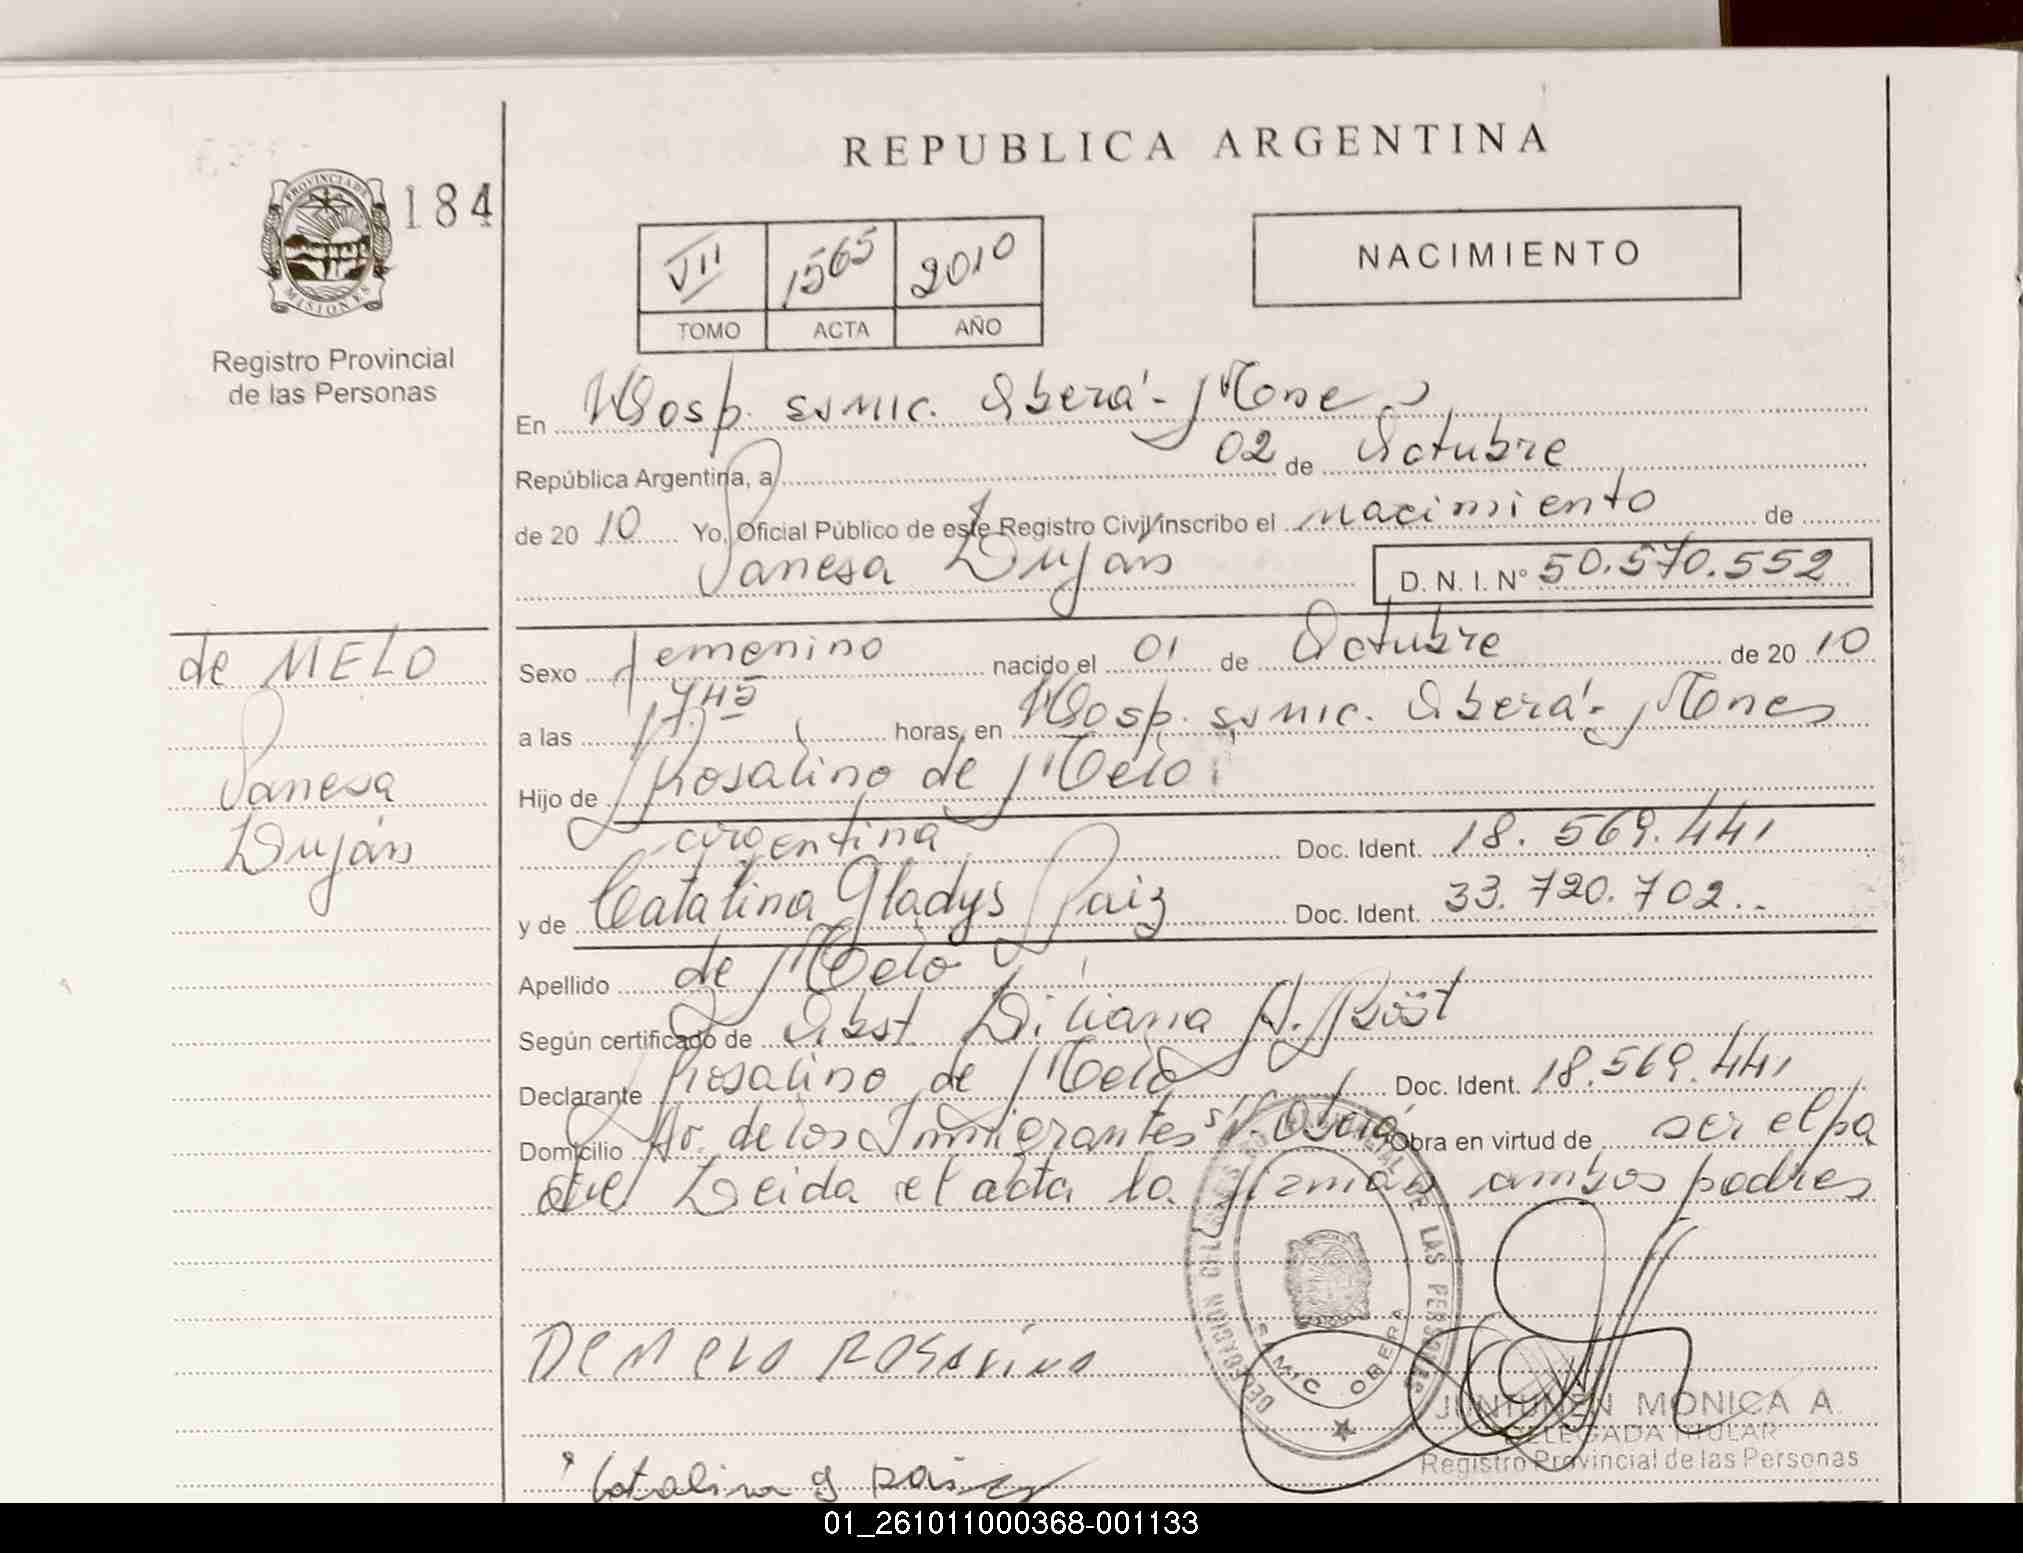 REPUBLICA ARGENTINA
PROVINCIA DE
MISIONES
184
Registro Provincial
de las Personas
VII 1565 2010
TOMO ACTA AÑO
NACIMIENTO
En Hosp. SAMIC. Oberá - Mones
República Argentina, a 02 de Octubre
de 20 10 Yo, Oficial Público de este Registro Civil inscribo el nacimiento de
Vanesa Luján D. N. I. Nº 50.570.552
de MELO
Vanesa
Luján
Sexo femenino nacido el 01 de Octubre de 20 10
a las 17.45 horas, en Hosp. SAMIC. Oberá - Mones
Hijo de Rosalino de Melo
argentina Doc. Ident. 18.569.441
y de Catalina Gladys Paiz Doc. Ident. 33.720.702..
Apellido de Melo
Según certificado de Obst. Liliana A. Böst
Declarante Rosalino de Melo Doc. Ident. 18.569.441
Domicilio Av. de los Inmigrantes s/N. Oberá Obra en virtud de ser el pa
dre/ Leida el acta la firman ambos padres
DELEGACION DEL REGISTRO PROVINCIAL DE LAS PERSONAS
SAMIC OBERA
DE MELO ROSALINO
Catalina g
JUNTUNEN MONICA A.
DELEGADA TITULAR
Registro Provincial de las Personas
01_261011000368-001133